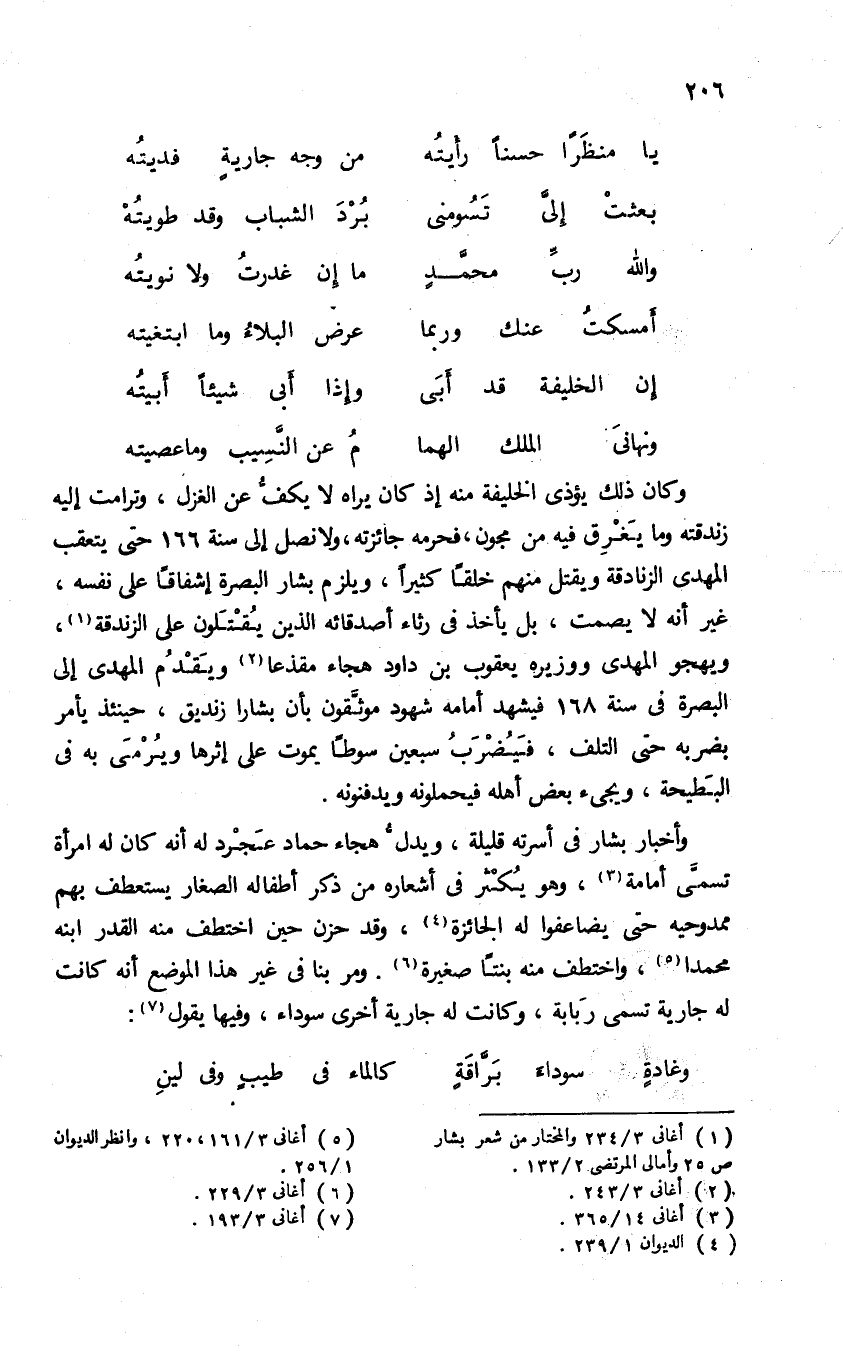 ٢٠٦
يا منظَرًا حسناً رأيتُه من وجه جاريةٍ فديتُه
بعثتْ إِلىَّ تَسُومنى بُرْدَ الشباب وقد طويتُهْ
والله ربِّ محمَّـــدٍ ما إِن غدرتُ ولا نويتُه
أَمسكتُ عنك وربما عرض البلاءُ وما ابتغيته
إن الخليفة قد أَبَى وإذا أَبى شيئاً أَبيتُه
ونهانىَ الملك الهما مُ عن النَّسِيب وماعصيته
وكان ذلك يؤذى الخليفة منه إذ كان يراه لا يكفُّ عن الغزل ، وترامت إليه
زندقته وما يَغْرِق فيه من مجون،فحرمه جائزته،ولانصل إلى سنة ١٦٦ حتى يتعقب
المهدى الزنادقة ويقتل منهم خلقًا كثيراً ، ويلزم بشار البصرة إشفاقًا على نفسه ،
غير أنه لا يصمت ، بل يأخذ فى رثاء أصدقائه الذين يُقْتَلون على الزندقة(١)،
ويهجو المهدى ووزيره يعقوب بن داود هجاء مقذعا(٢) ويَقْدُم المهدى إلى
البصرة فى سنة ١٦٨ فيشهد أمامه شهود موثَّقون بأن بشارا زنديق ، حينئذ يأمر
بضربه حتى التلف ، فَيُضْرَبُ سبعين سوطًا يموت على إثرها ويُرْمَى به فى
البَطيحة ، ويجىء بعض أهله فيحملونه ويدفنونه .
وأخبار بشار فى أسرته قليلة ، ويدلُّ هجاء حماد عَجْرد له أنه كان له امرأة
تسمَّى أمامة(٣) ، وهو يُكثْر فى أشعاره من ذكر أطفاله الصغار يستعطف بهم
ممدوحيه حتى يضاعفوا له الجائزة(٤) ، وقد حزن حين اختطف منه القدر ابنه
محمدا(٥) ، واختطف منه بنتًا صغيرة(٦) . ومر بنا فى غير هذا الموضع أنه كانت
له جارية تسمى رَبابة ، وكانت له جارية أخرى سوداء ، وفيها يقول(٧):
وغادةٍ سوداءَ بَرَّاقَةٍ كالماء فى طيبٍ وفى لينِ
(١) أغانى ٢٣٤/٣ والمختار من شعر بشار
ص ٢٥ وأمالى المرتضى ١٣٣/٢ .
(٢) أغانى ٢٤٣/٣ .
(٣) أغانى ٣٦٥/١٤ .
(٤) الديوان ٢٣٩/١ .
(٥) أغانى ١٦١/٣،٢٢٠ ، وانظر الديوان
٢٥٦/١ .
(٦) أغانى ٢٢٩/٣ .
(٧) أغانى ١٩٣/٣ .